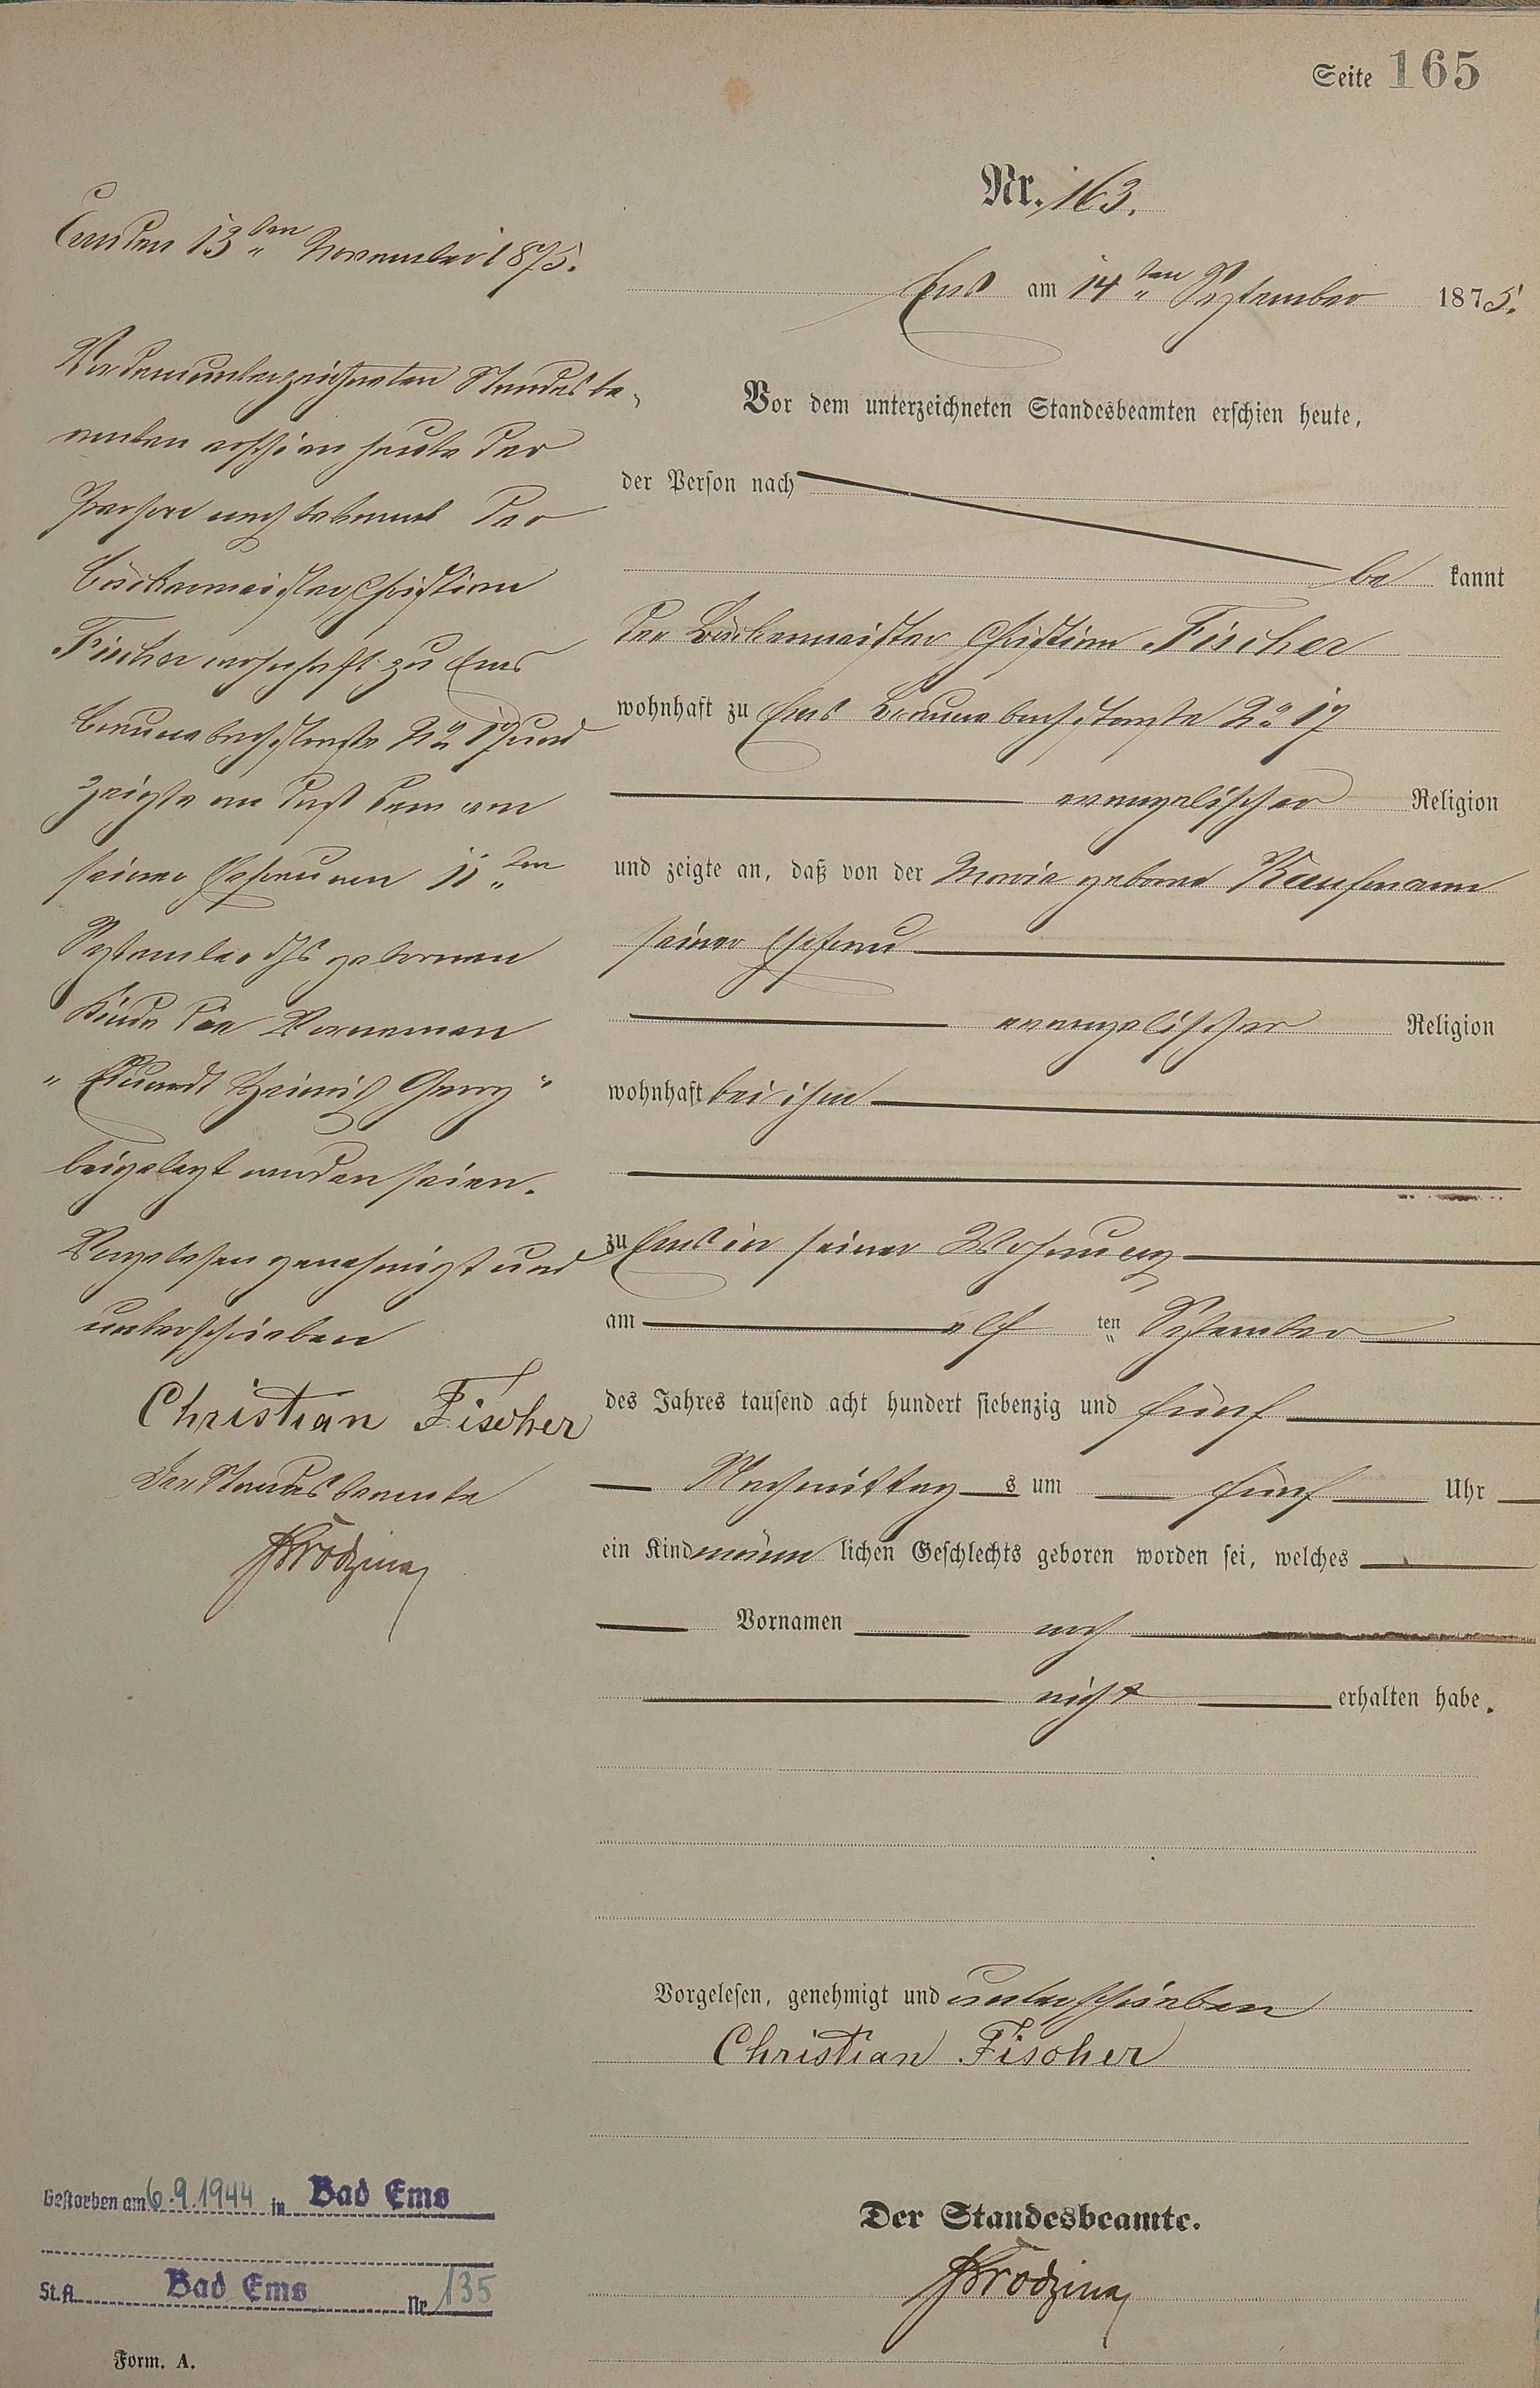 Seite 165
Nr. 163.
Ems am 14ten September 1875.
Vor dem unterzeichneten Standesbeamten erschien heute,
der Person nach
be kannt
der Bäckermeister Christian Fischer
wohnhaft zu Ems Braunebachstraße No 17
evangelischer Religion
und zeigte an, daß von der Maria geborene Kaufmann
seiner Ehefrau
evangelischer Religion
wohnhaft bei ihm
zu Ems in seiner Wohnung
am elf ten September
des Jahres tausend acht hundert siebenzig und fünf
Nachmittag s um fünf Uhr
ein Kind männ lichen Geschlechts geboren worden sei, welches
Vornamen noch
nicht erhalten habe.
Vorgelesen, genehmigt und unterschrieben
Christian Fischer
Der Standesbeamte.
Ems den 13ten November 1875.
Vor dem unterzeichneten Standesbe-
amten erschien heute der
Person nach bekannt der
Bäckermeister Christian
Fischer wohnhaft zu Ems
Braunebachstraße No 17 und
zeigte an daß dem von
seiner Ehefrau am 11ten
September ds Js geborenen
Kinde die Vornamen
"Eduard Heinrich Georg"
beigelegt worden seien.
Vorgelesen genehmigt und
unterschrieben
Christian Fischer
Der Standesbeamte
Gestorben am 6.9.1944 in Bad Ems
St.A. Bad Ems Nr. 135
Form. A.